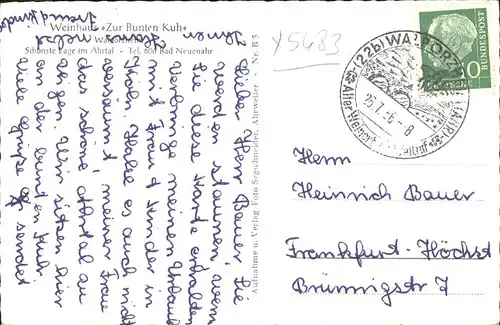 Weinhaus »Zur Bunten Kuh«
Walporzheim
Schönste Lage im Ahrtal - Tel. 600 Bad Neuenahr
Lieber Herr Bauer, Sie
werden staunen, wenn
Sie diese Karte erhalten.
Verbringe meinen Urlaub
mit Frau u. Kinder in
Köln. Habe es auch nicht
versäumt, meiner Frau
das schöne Ahrtal zu
zeigen. Wir sitzen hier
an der bunten Kuh.
Viele Grüße sendet
Ihnen
Nr. B 3
Aufnahme u. Verlag Foto Segschneider, Ahrweiler
X5483
(22b) WALPORZ
(AHR)
25.7.56-8
Alter Weinort
DEUTSCHE BUNDESPOST
10
Herrn
Heinrich Bauer
Frankfurt-Höchst
Brünnigstr 7